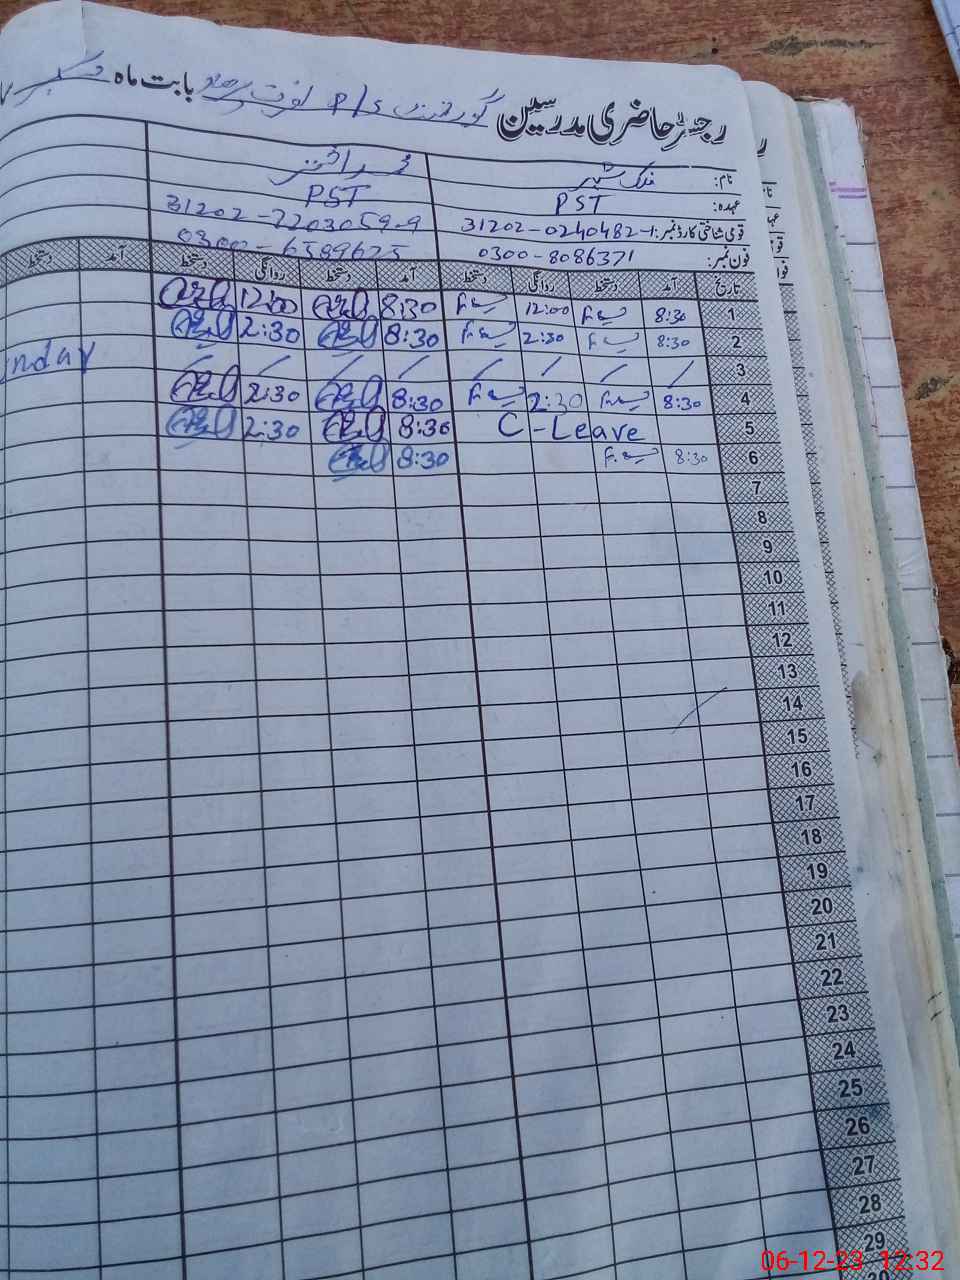 رجسٹر حاضری مدرسین گورنمنٹ P/S بابت ماہ دسمبر
نام:
عہدہ: PST PST
قومی شناختی کارڈ نمبر: 31202-0240482-1 31202-7203059-9
فون نمبر: 0300-8086371 0300-6389625
تاریخ آمد دستخط روانگی دستخط آمد دستخط روانگی دستخط آمد دستخط
1 8:30 12:00 8:30 12:00
2 8:30 2:30 8:30 2:30
3 / / / / / / / / unday
4 8:30 2:30 8:30 2:30
5 C-Leave 8:30 2:30
6 8:30 8:30
7
8
9
10
11
12
13
14
15
16
17
18
19
20
21
22
23
24
25
26
27
28
29
06-12-23 12:32